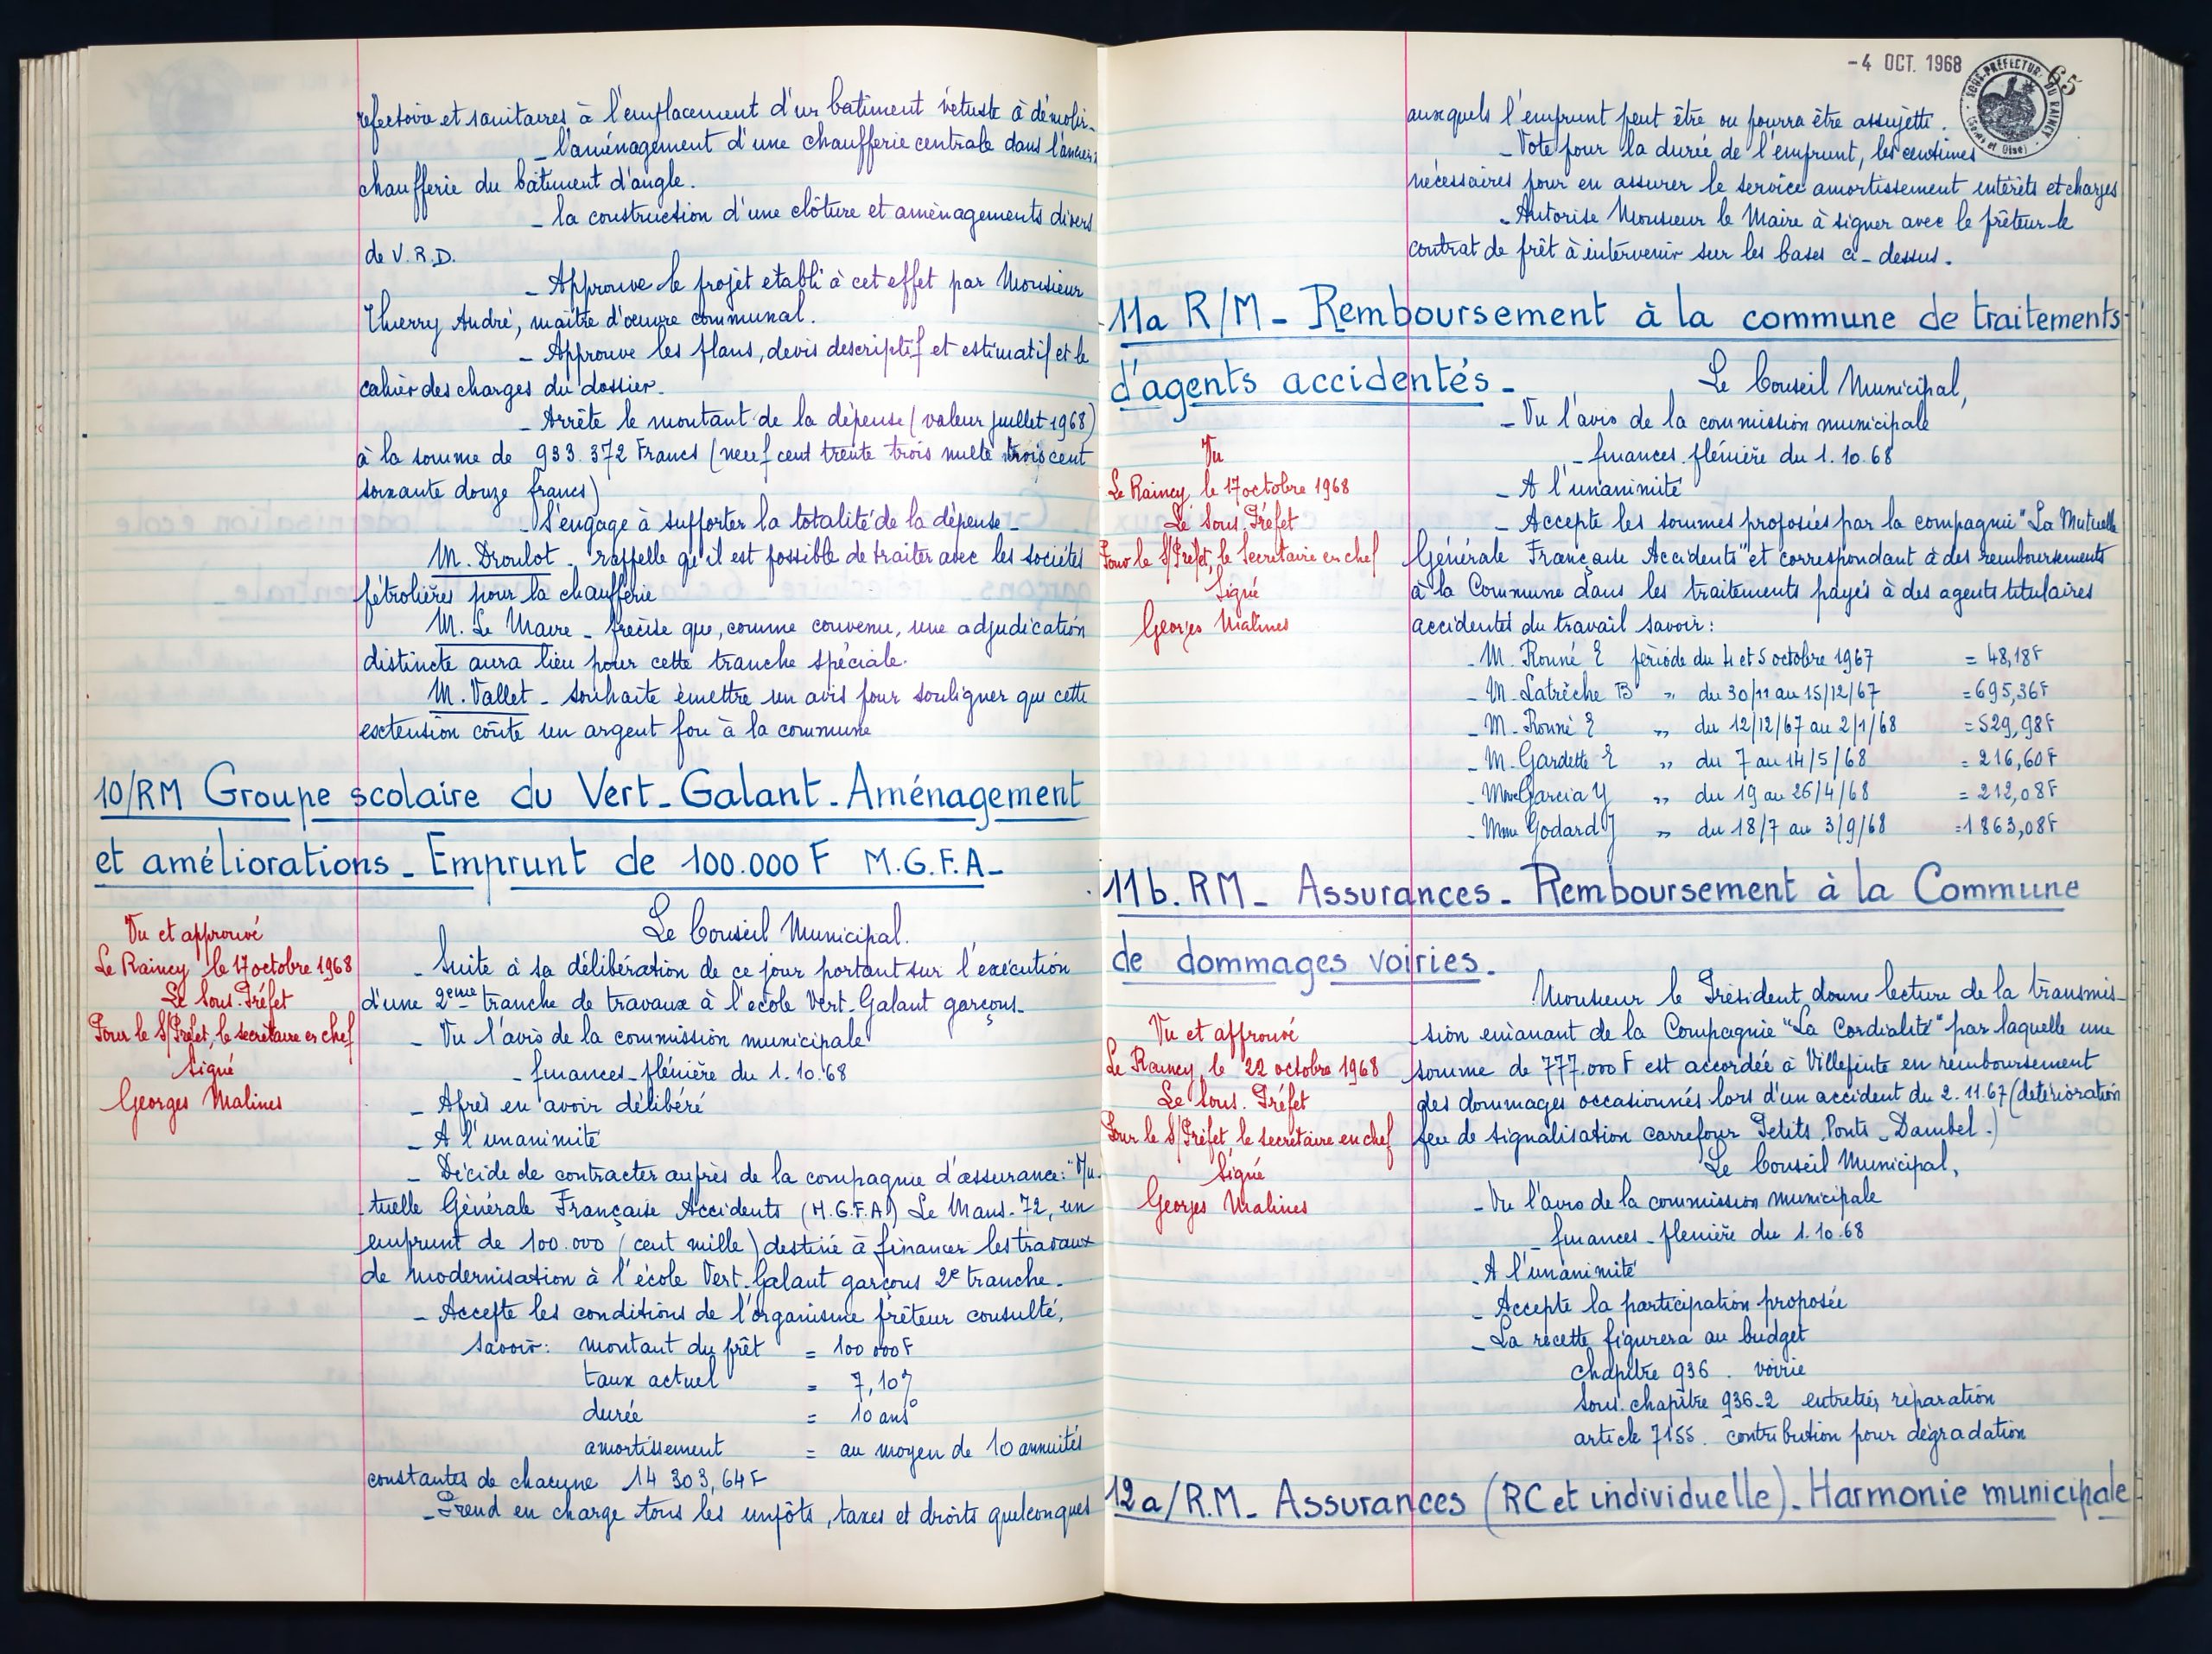 refectoire et sanitaires à l'emplacement d'un batiment vétuste à démolir_
_ l'aménagement d'une chaufferie centrale dans l'ancien
chaufferie du bâtiment d'angle.
_ la construction d'une clôture et aménagements divers
de V.R.D.
_ Approuve le projet etabli à cet effet par Monsieur
Thierry André, maitre d'oeuvre communal.
_ Approuve les plans, devis descriptif et estimatif et le
cahier des charges du dossier_
_ Arrête le montant de la dépense (valeur juillet 1968)
à la somme de 933.372 Francs (neuf cent trente trois mille trois cent
soixante douze francs)
_ S'engage à supporter la totalité de la dépense_
M. Droulot _ rappelle qu'il est possible de traiter avec les sociétés
pétrolières pour la chaufferie
M. Le Maire _ précise que, comme convenu, une adjudication
distincte aura lieu pour cette tranche spéciale.
M. Vallet _ souhaite émettre un avis pour souligner que cette
extension coûte un argent fou à la commune
10/RM Groupe scolaire du Vert_Galant_Aménagement
et améliorations_Emprunt de 100.000 F M.G.F.A_
Vu et approuvé
Le Raincy le 17 octobre 1968
Le Sous-Préfet
Pour le S/Préfet, le secrétaire en chef
Signé
Georges Malines
Le Conseil Municipal.
_ Suite à sa délibération de ce jour portant sur l'exécution
d'une 2eme tranche de travaux à l'école Vert_Galant garçons_
_ Vu l'avis de la commission municipale
_ finances_plénière du 1.10.68
_ Après en avoir délibéré
_ A l'unanimité
_ Décide de contracter auprès de la compagnie d'assurance: "Mu_
tuelle Générale Française Accidents (M.G.F.A.) Le Mans-72, un
emprunt de 100.000 (cent mille) destiné à financer les travaux
de modernisation à l'école Vert_Galant garçons 2e tranche_
_ Accepte les conditions de l'organisme prêteur consulté,
savoir: montant du prêt = 100 000F
taux actuel = 7,10%
durée = 10 ans
amortissement = au moyen de 10 annuités
constantes de chacune 14 303,64F
_ Prend en charge tous les impôts, taxes et droits quelconques
-4 OCT. 1968
SOUS-PRÉFECTURE DU RAINCY
(Seine et Oise)
65
auxquels l'emprunt peut être ou pourra être assujetti.
_ Vote pour la durée de l'emprunt, les centimes
nécessaires pour en assurer le service amortissement intérêts et charges
_ Autorise Monsieur le Maire à signer avec le prêteur le
contrat de prêt à intervenir sur les bases ci-dessus.
11a R/M_ Remboursement à la commune de traitements
d'agents accidentés_
Vu
Le Raincy, le 17 octobre 1968
Le Sous. Préfet
Pour le S/Préfet, le Secrétaire en chef
Signé
Georges Malines
Le Conseil Municipal,
_ Vu l'avis de la commission municipale
_ finances. plénière du 1.10.68
_ A l'unanimité
_ Accepte les sommes proposées par la compagnie "La Mutuelle
Générale Française Accidents" et correspondant à des remboursements
à la Commune dans les traitements payés à des agents titulaires
accidentés du travail savoir:
_ M. Ronné E période du 4 et 5 octobre 1967 = 48,18F
_ M. Latrèche B " du 30/11 au 15/12/67 = 695,36F
_ M. Ronné E " du 12/12/67 au 2/1/68 = 529,98F
_ M. Gardette E " du 7 au 14/5/68 = 216,60F
_ Mme Garcia Y " du 19 au 26/4/68 = 212,08F
_ Mme Godard J " du 18/7 au 3/9/68 = 1 863,08F
11b. RM_ Assurances_ Remboursement à la Commune
de dommages voiries_
Vu et approuvé
Le Raincy, le 22 octobre 1968
Le Sous. Préfet
Pour le S/Préfet le secrétaire en chef
Signé
Georges Malines
Monsieur le Président donne lecture de la transmis_
sion émanant de la Compagnie "La Cordialité" par laquelle une
somme de 777.000 F est accordée à Villepinte en remboursement
des dommages occasionnés lors d'un accident du 2.11.67 (détérioration
feu de signalisation carrefour Petits Ponts_Dambel_)
Le Conseil Municipal,
_ Vu l'avis de la commission municipale
_ finances_plenière du 1.10.68
_ A l'unanimité
_ Accepte la participation proposée
_ La recette figurera au budget
chapitre 936. voirie
sous. chapitre 936-2 entretien, réparation
article 7155. contribution pour dégradation
12a/R.M_ Assurances (RC et individuelle)_Harmonie municipale